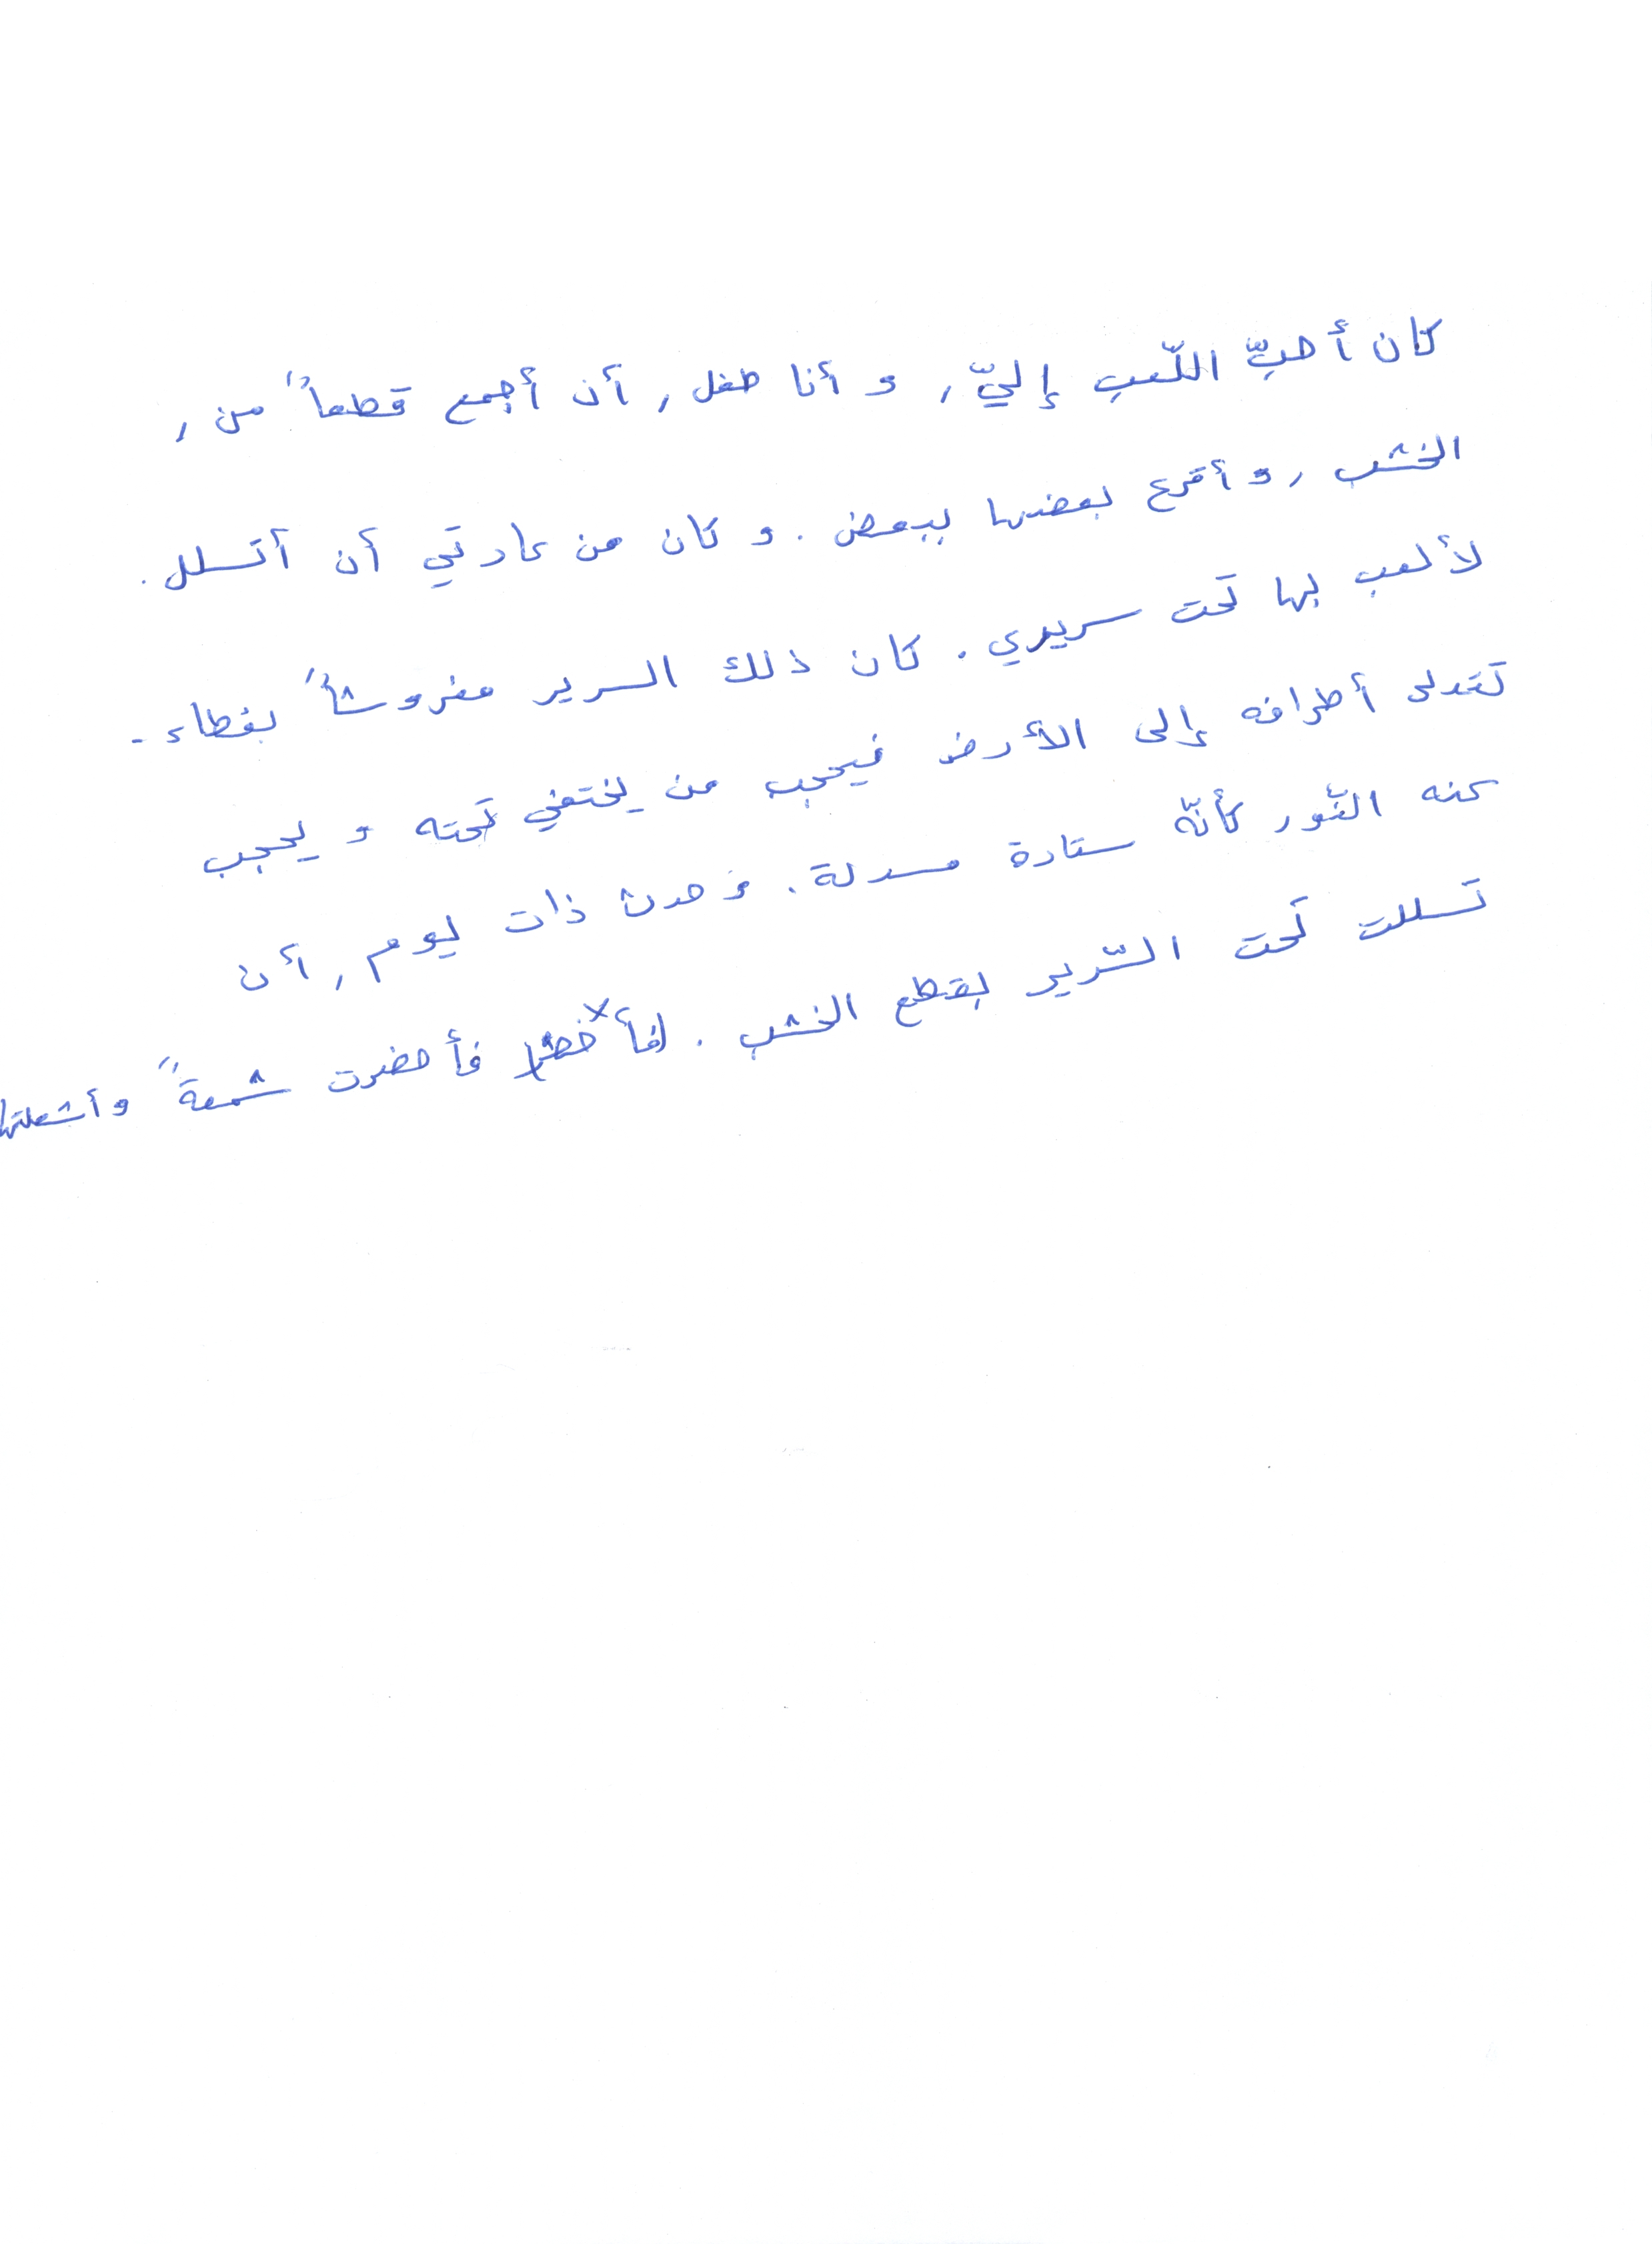 كان أحبّ اللّعب إليّ، و أنا طفل، أن أجمع قطعاً من،
الخشب، و أقرع بعضها ببعض. و كان من عادتي أن أتسلل.
لألعب بها تحت سريري. كان ذلك السرير مفروشاً بغطاء.
تتدلى أطرافه إلى الأرض فيحجب من يختفي تحته و يحجب
عنه النّور كأنّه ستارة مسدلة. و حدث ذات يوم، أن
تسللت تحت السّرير بقطع الخشب. فأحضرت شمعةً و أشعلتها